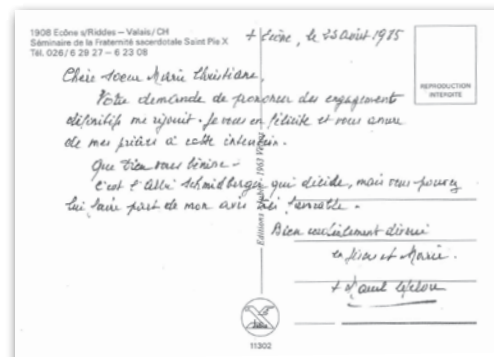 1908 Ecône s/Riddes – Valais/CH
Séminaire de la Fraternité sacerdotale Saint Pie X
Tél. 026/6 29 27 – 6 23 08
+ Ecône, le 23 août 1985
REPRODUCTION
INTERDITE
Chère soeur Marie Christiane,
Votre demande de prononcer des engagements
définitifs me réjouit. Je vous en félicite et vous assure
de mes prières à cette intention.
Que Dieu vous bénisse –
C'est l'abbé Schmidberger qui décide, mais vous pouvez
lui faire part de mon avis favorable.
Bien cordialement
en Jésus et Marie.
+ Marcel Lefebvre
Editions 1963
11302